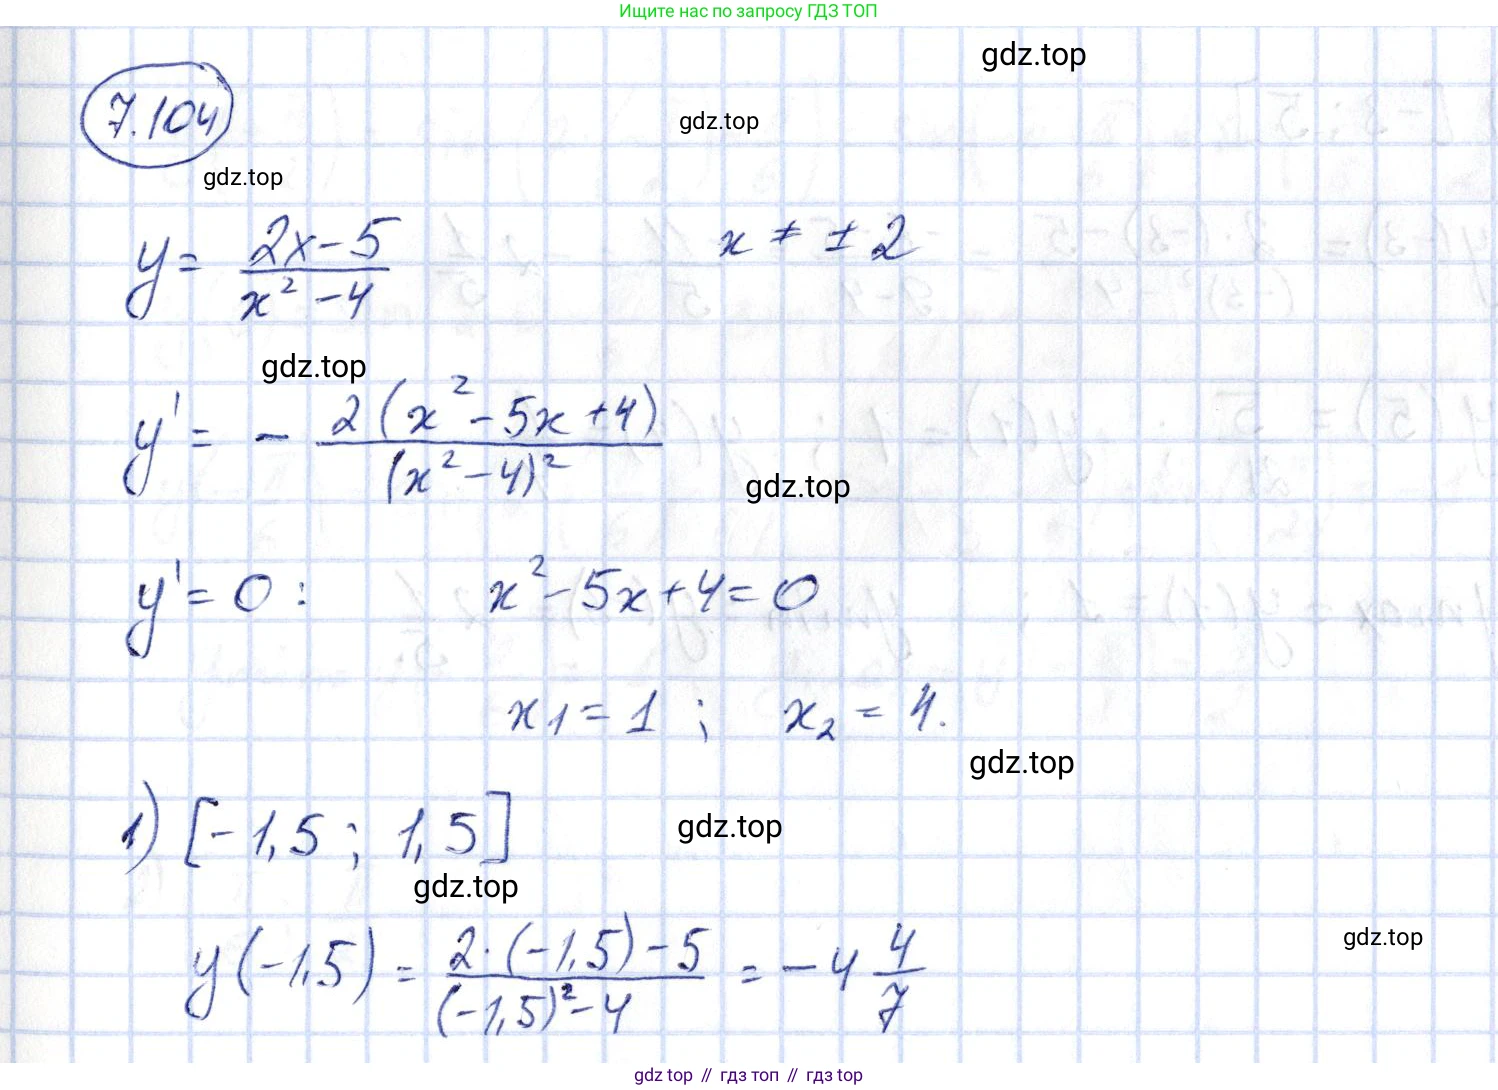 Ищите нас по запросу ГДЗ ТОП
gdz.top
7.104
gdz.top
gdz.top
y = (2x - 5)/(x² - 4)    x ≠ ± 2
gdz.top
y' = - 2(x² - 5x + 4)/(x² - 4)²
gdz.top
y' = 0 :    x² - 5x + 4 = 0
x₁ = 1 ;    x₂ = 4.
gdz.top
1) [-1,5 ; 1,5]
gdz.top
gdz.top
y(-1,5) = (2·(-1,5) - 5)/((-1,5)² - 4) = -4 4/7
gdz.top
gdz top // гдз топ // гдз top